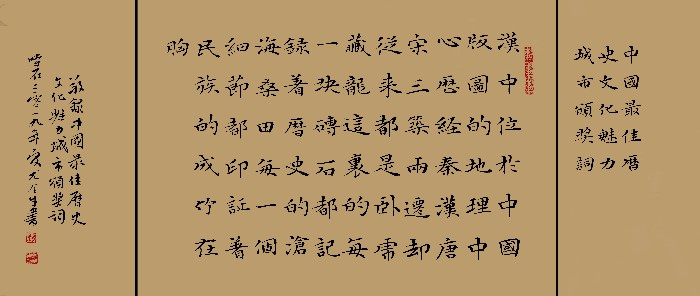 中國最佳曆
史文化魅力
城市頒獎詞
漢中位於中國
版圖的地理中
心曆經秦漢唐
宋三築兩遷却
從來都是卧虎
藏龍這裏的每
一块磚石都記
録着曆史的滄
海桑田每一個
細節都印証着
民族的成竹在
胸
録中國最佳曆史
文化魅力城市頒獎詞
時在二零一九年夏尤全生書